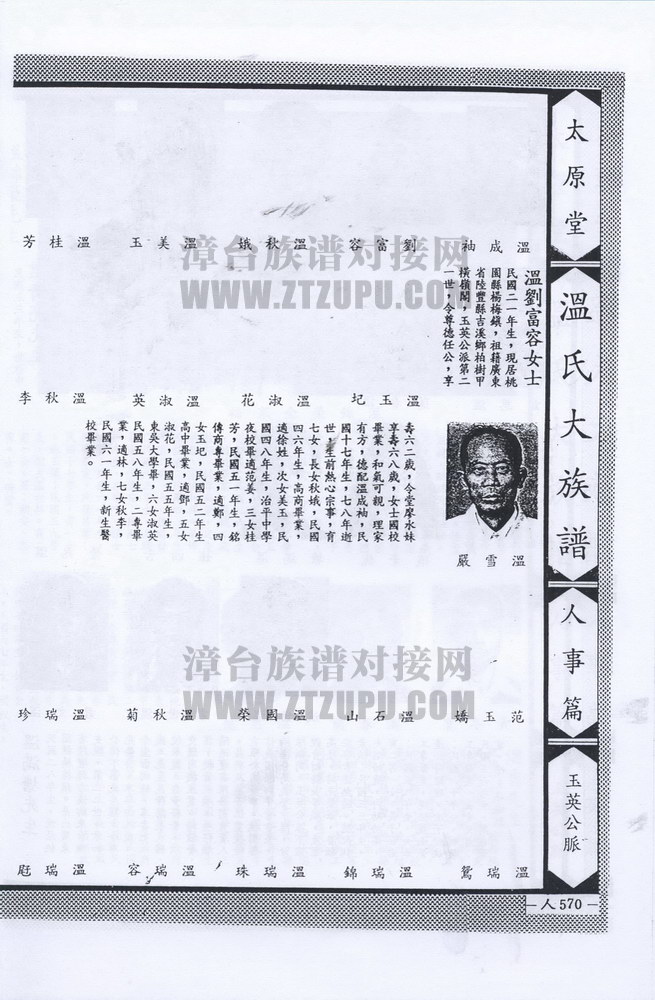 太原堂
溫氏大族譜
人事篇
玉英公脈
溫成袖
劉富容
溫秋娥
溫美玉
溫桂芳
漳台族谱对接网
WWW.ZTZUPU.COM
溫劉富容女士
民國二一年生，現居桃
園縣楊梅鎮，祖籍廣東
省陸豐縣吉溪鄉柏樹甲
橫嶺閣，玉英公派第二
一世，令尊德任公，享
溫玉圮
溫淑花
溫淑英
溫秋李
壽六二歲，令堂廖水妹
享壽六八歲，女士國校
畢業，和氣可親，理家
有方，德配溫成袖，民
國十七年生，七八年逝
世，生前熱心宗事，育
七女，長女秋娥，民國
四六年生，高商畢業，
適徐姓，次女美玉，民
國四八年生，治平中學
夜校畢適范姜，三女桂
芳，民國五一年生，銘
傳商專畢業，適鄭，四
女玉圮，民國五二年生
高中畢業，適鄧，五女
淑花，民國五五年生，
東吳大學畢，六女淑英
民國五八年生，二專畢
業，適林，七女秋李，
民國六一年生，新生醫
校畢業。
溫雪嚴
范玉嬌
溫石山
溫國榮
溫秋菊
溫瑞珍
漳台族谱对接网
WWW.ZTZUPU.COM
溫瑞鴛
溫瑞錦
溫瑞珠
溫瑞容
溫瑞
—人570—